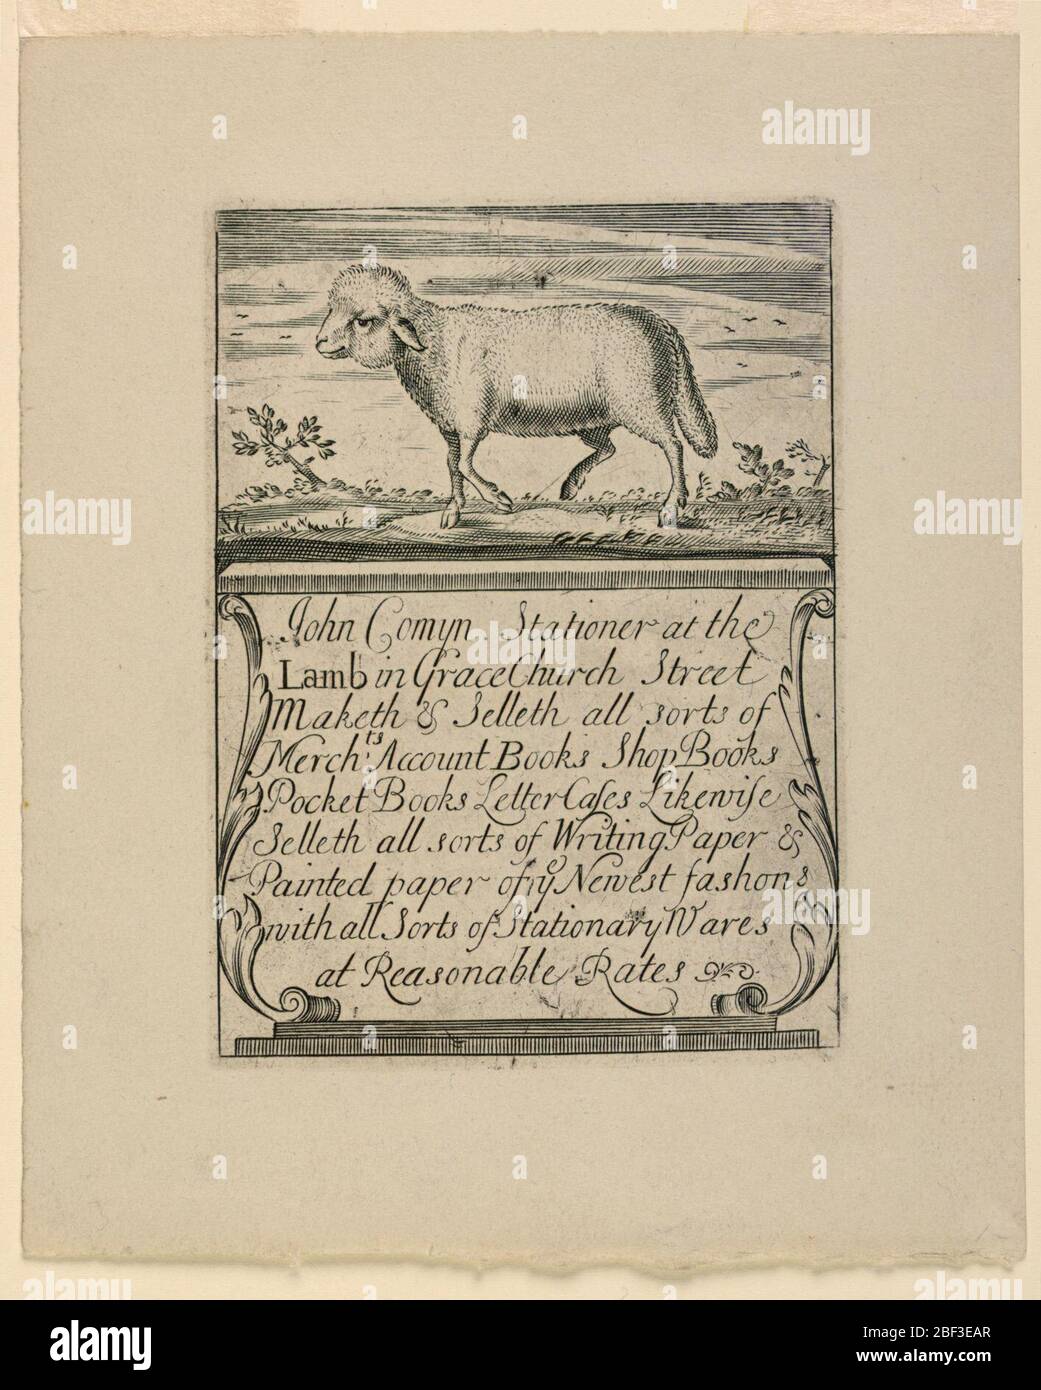 John Comyn Stationer at the
Lamb in GraceChurch Street
Maketh & Selleth all sorts of
Merch.ts Account Books Shop Books
Pocket Books Letter Caſes Likewiſe
Selleth all sorts of Writing Paper &
Painted paper of ye Newest fashons
with all Sorts of Stationary Wares
at Reasonable Rates
a a alamy
a a
alamy a alamy
a a
a alamy
a a
a a
alamy alamy
alamy
Image ID: 2BF3EAR
www.alamy.com